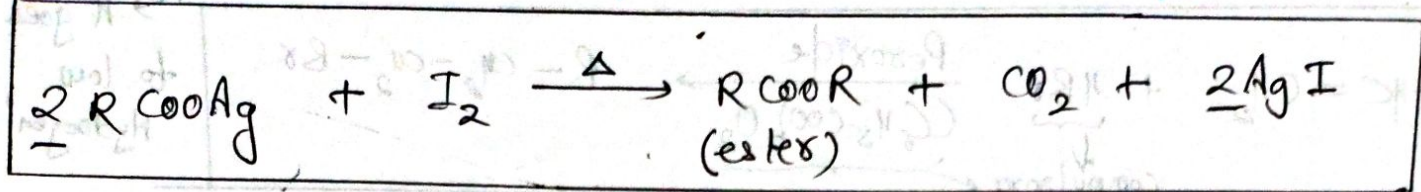 2 RCOOAg + I₂ —Δ→ RCOOR + CO₂ + 2AgI
(ester)